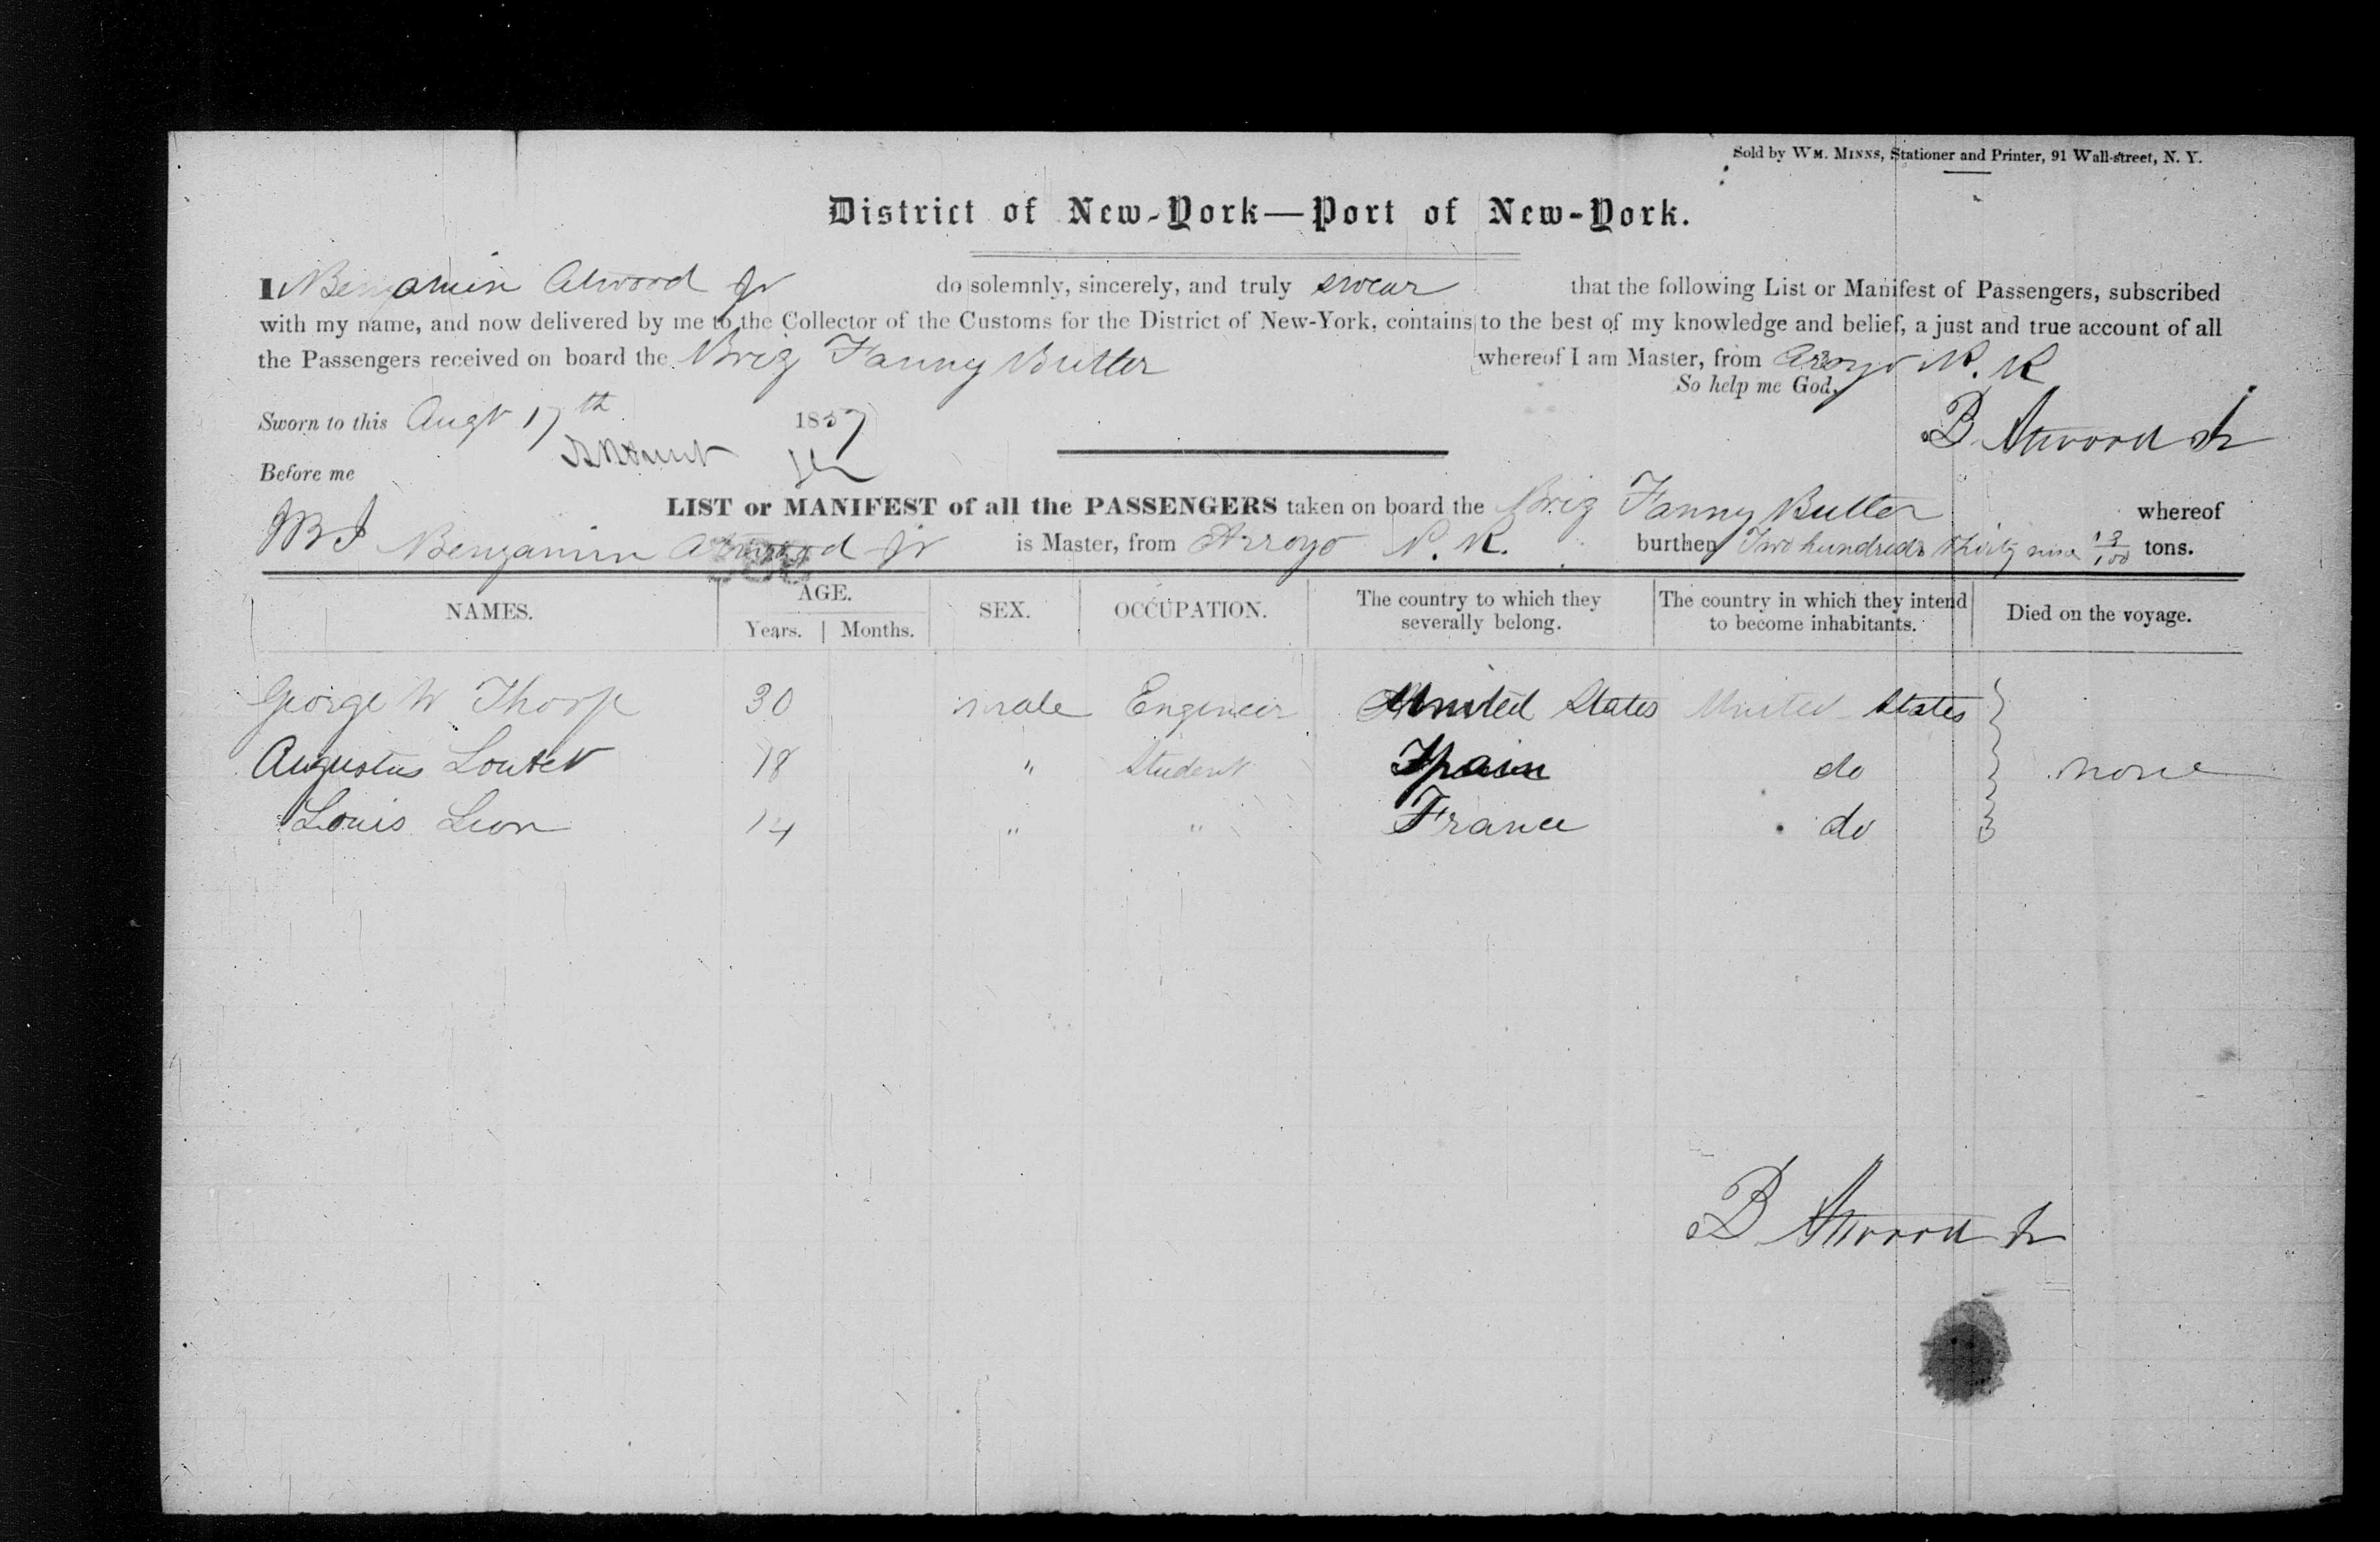 Sold by WM. MINNS, Stationer and Printer, 91 Wall-street, N. Y.
District of New-York—Port of New-York.
I Benjamin Atwood Jr do solemnly, sincerely, and truly swear that the following List or Manifest of Passengers, subscribed
with my name, and now delivered by me to the Collector of the Customs for the District of New-York, contains to the best of my knowledge and belief, a just and true account of all
the Passengers received on board the Brig Fanny Butler whereof I am Master, from Aroyo P. R
So help me God.
Sworn to this Augt 17th 1857
B Atwood Jr
Before me
LIST or MANIFEST of all the PASSENGERS taken on board the Brig Fanny Butler whereof
Benjamin Atwood Jr is Master, from Arroyo P. R. burthen Two hundred thirty nine 13/100 tons.
NAMES. AGE. SEX. OCCUPATION. The country to which they severally belong. The country in which they intend to become inhabitants. Died on the voyage.
Years. Months.
George W Thorp 30 male Engineer United States United States
Augustus 18 " Student Spain do none
Louis Leon 14 " " France do
B Atwood Jr